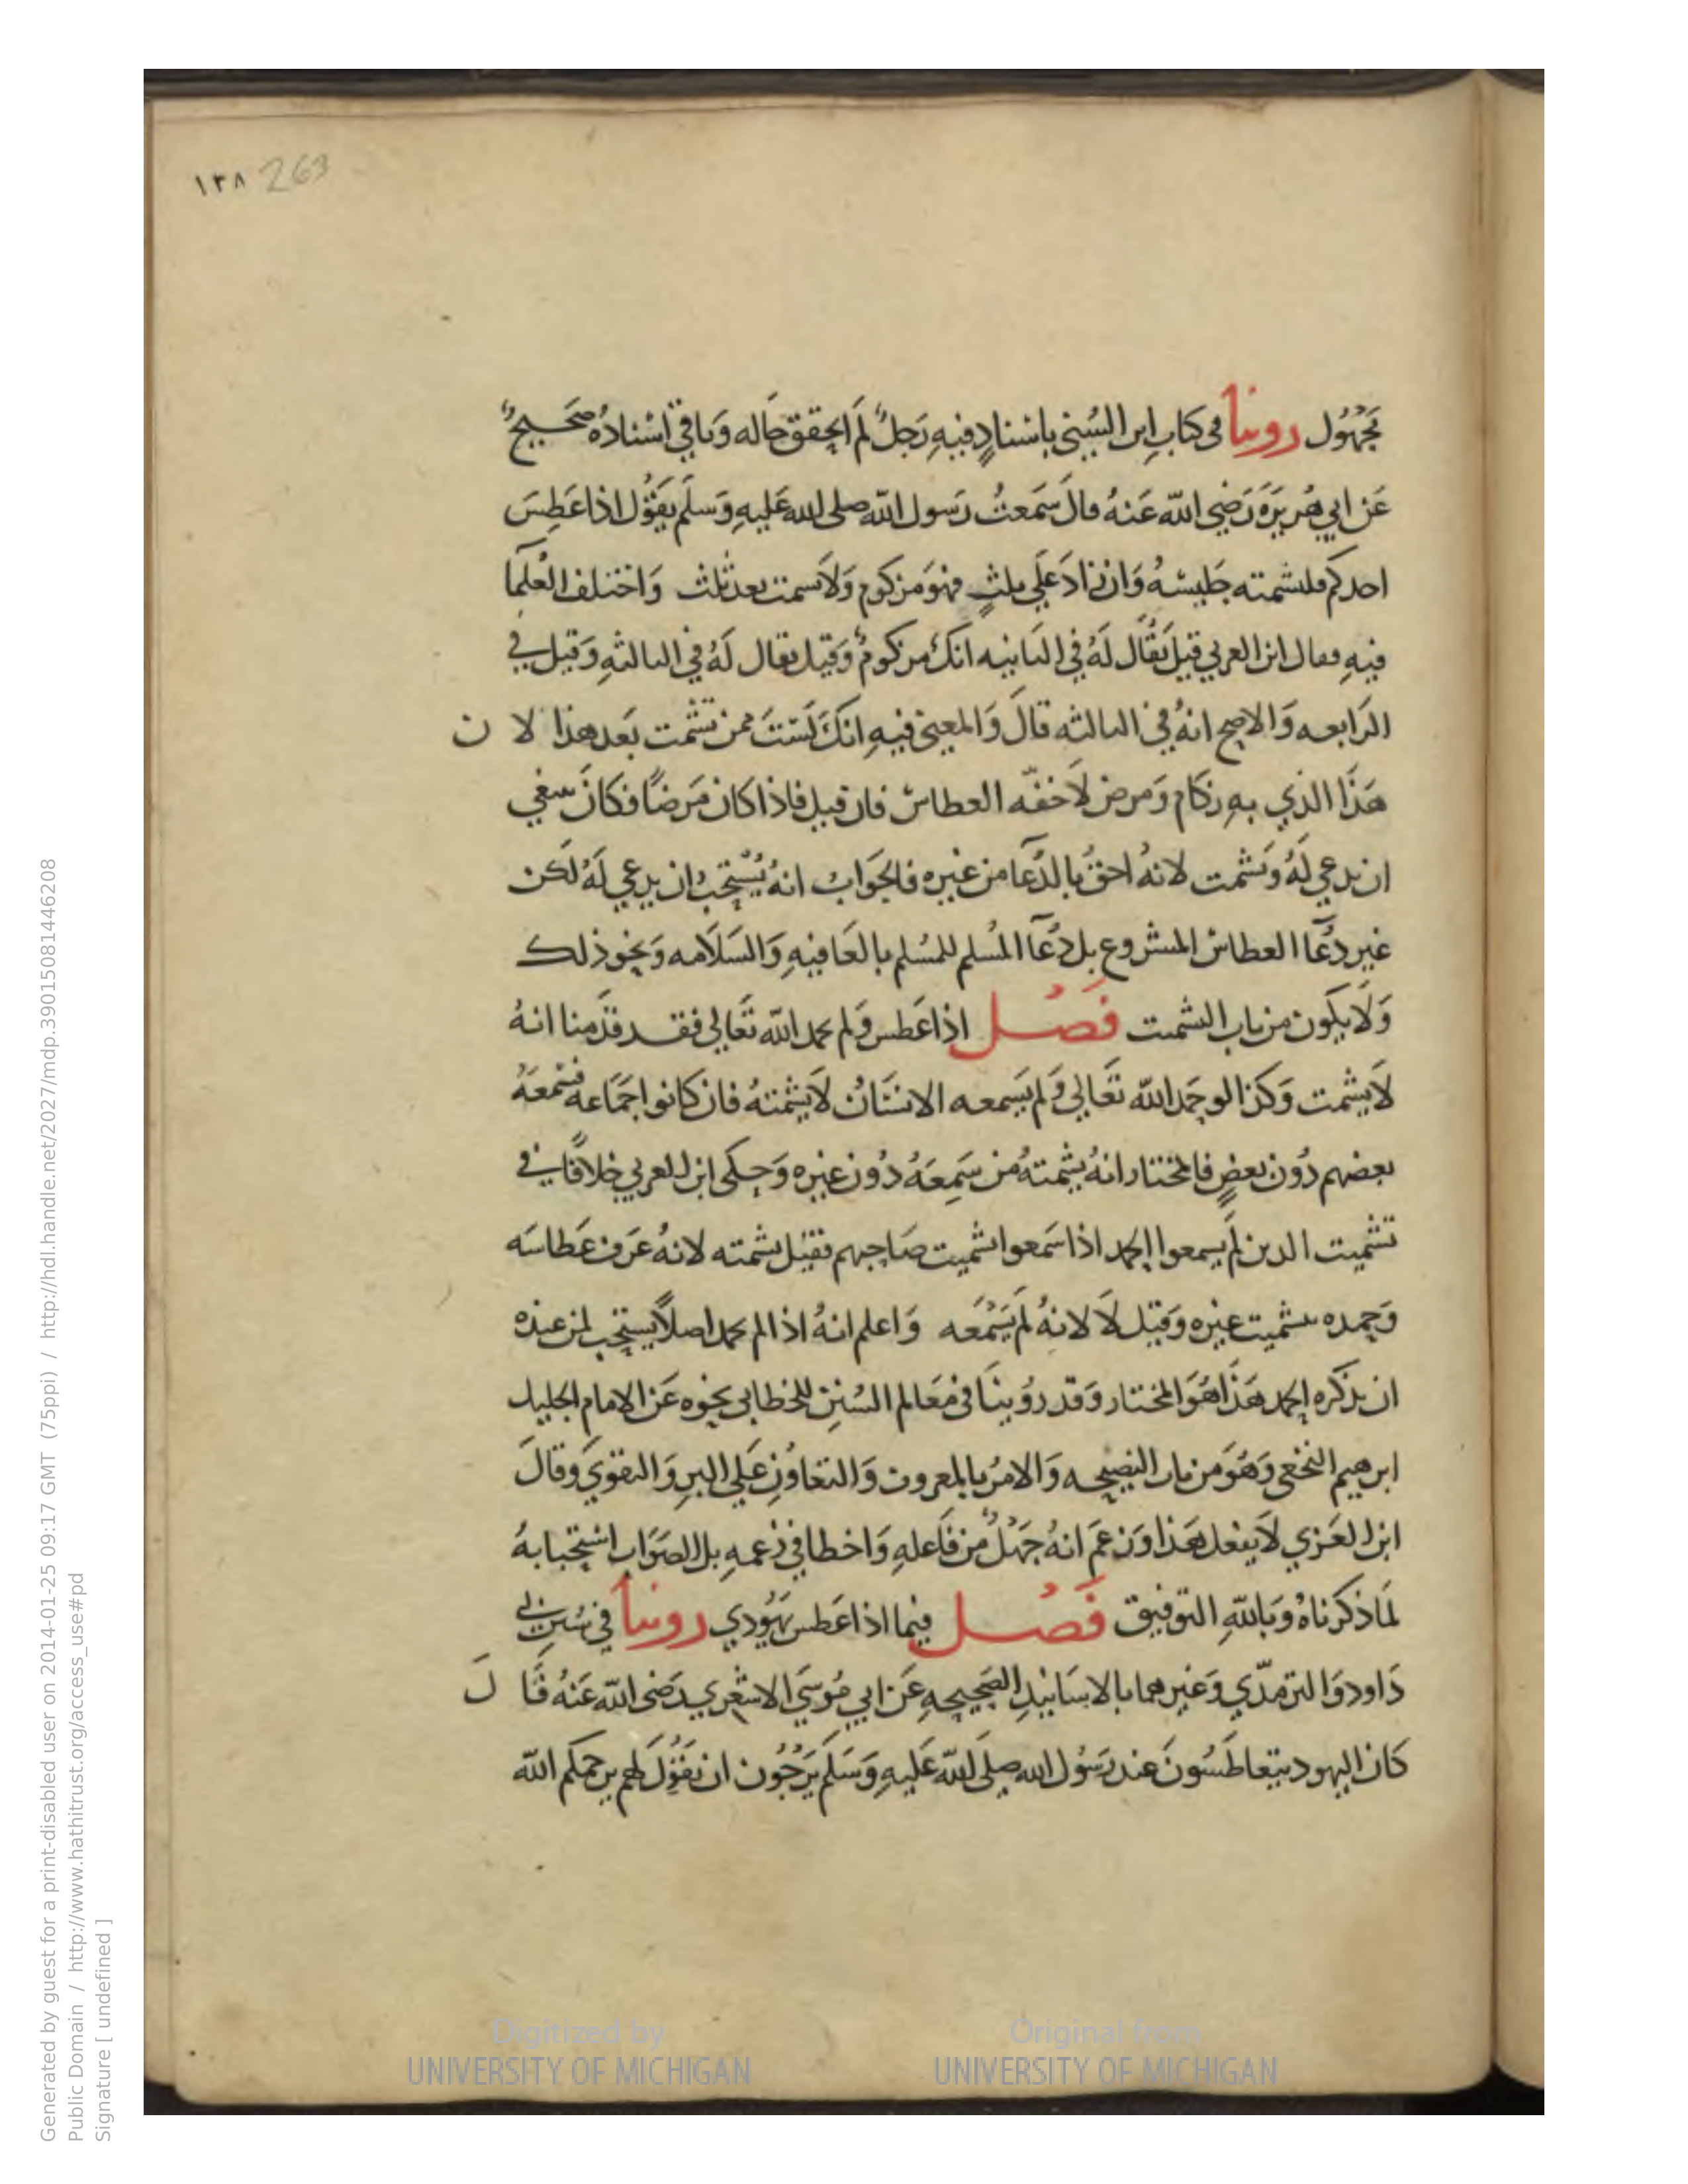 ١٣٨ 263
مَجهُول روينا في كتاب ابن السُني باسنادٍ فيهِ رَجلٌ لَم اتحقق حَاله وَباقي اسنادُه صَحيحٌ
عَن ابي هُريرَة رَضي الله عَنهُ قال سَمعتُ رَسول الله صلى الله عَليهِ وَسلم يَقُول اذا عَطِسَ
احدكم فليشمته جَليسهُ وَان زادَ عَلى ثلثٍ فهوَ مَزكوم وَلا يشمت بعد ثلث وَاختلف العُلما
فيهِ فقال ابن العربي قيل يُقَال لَهُ في الثانيه انكَ مزكومٌ وَقيل يقال لَهُ في الثالثهِ وَقيل في
الرَابعه وَالاصح انهُ في الثالثه قالَ وَالمعني فيهِ انكَ لَستَ ممن تشمت بَعد هذا لان
هَذَا الذي بهِ زكام وَمرض لَا خفه العطاس فان قيل فاذا كان مَرضًا فكانَ ينبغي
ان يدعي لَهُ وَيشمت لانهُ احقُ بالدُعا من غيره فالجَوابُ انهُ يُستَحبُ ان يدعي لَهُ لَكن
غير دُعا العطاس المشروع بل دُعَا المُسلم للمُسلم بالعَافيهِ وَالسَلَامه وَنحو ذلك
وَلَا يكون من باب التشميت فَصْل اذا عَطس وَلم يحمد الله تَعَالي فقد قدَمنا انهُ
لَا يشمت وَكذا لو حَمد الله تَعَالي وَلم يَسمعه الانسَانُ لَا يشمتهُ فان كانوا جَمَاعه فسَمعَهُ
بعضهم دُون بعضٍ فالمختار انهُ يشمتهُ من سَمِعَهُ دُون غيره وَحكى ابن العربي خلافًا في
تشميت الدين لَم يسمعوا الحمد اذا سَمعوا تشميت صَاحبهم فقيل يشمته لانهُ عَرف عَطاسَه
وَحمده بتشميت غيره وَقيل لَا لانهُ لَم يَسْمَعه وَاعلم انهُ اذا لم يحمد اصلاً يستحب لمن عنده
ان يذكره الحمد هَذا هُوَ المختار وَقد رُوينَا في مَعَالم السُنن للخطابي نحوه عَن الامام الجَليل
ابرهيم النخعي وَهُوَ من باب النصيحه وَالامر بالمعروف وَالتعَاوُن عَلي البرِ وَالتقوي وَقالَ
ابن العَربي لَا يفعل هَذا وَزعَم انهُ جَهْلٌ من فَاعلهِ وَاخطا في زعمهِ بل الصَوَاب استحبابهُ
لمَا ذكرناهُ وَبَاللهِ التوفيق فَصْل فيما اذا عَطس يَهُودي روينا في سُنن ابي
دَاود وَالترمذي وَغيرهما بالاسَانيد الصَحيحهِ عَن ابي مُوسَي الاشعري رَضى الله عَنهُ قَالَ
كان اليهود يتعاطَسُونَ عند رَسُول الله صلَى الله عَليهِ وَسَلم يَرْجُون ان يَقُولَ لهم يرحمكم الله
Digitized by
UNIVERSITY OF MICHIGAN
Original from
UNIVERSITY OF MICHIGAN
Generated by guest for a print-disabled user on 2014-01-25 09:17 GMT (75ppi) / http://hdl.handle.net/2027/mdp.39015081446208
Public Domain / http://www.hathitrust.org/access_use#pd
Signature [ undefined ]